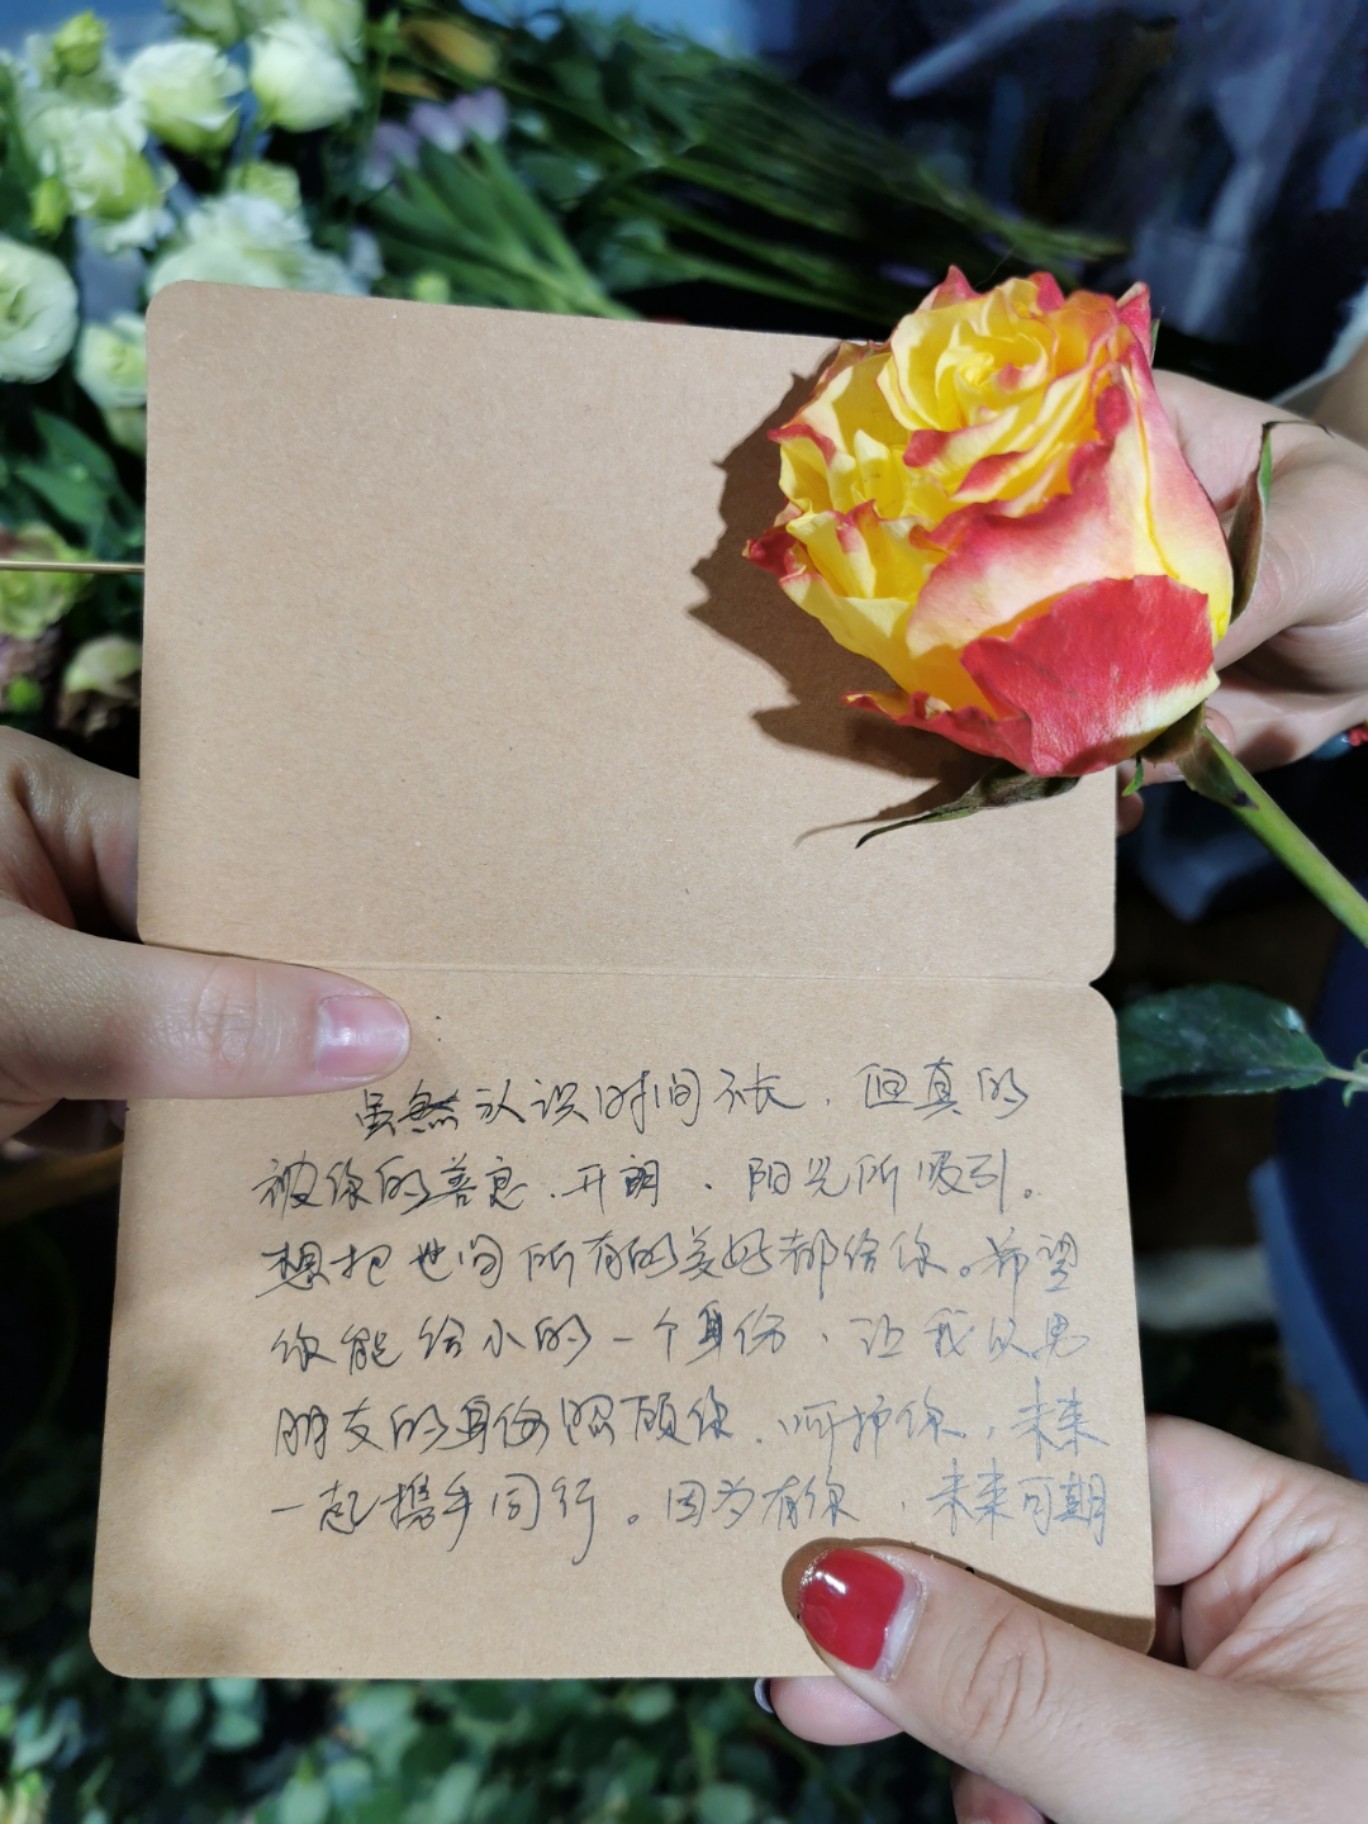 虽然认识时间不长，但真的
被你的善良、开朗、阳光所吸引。
想把世间所有的美好都给你。希望
你能给小的一个身份，让我以男
朋友的身份照顾你、呵护你，未来
一起携手同行。因为有你，未来可期